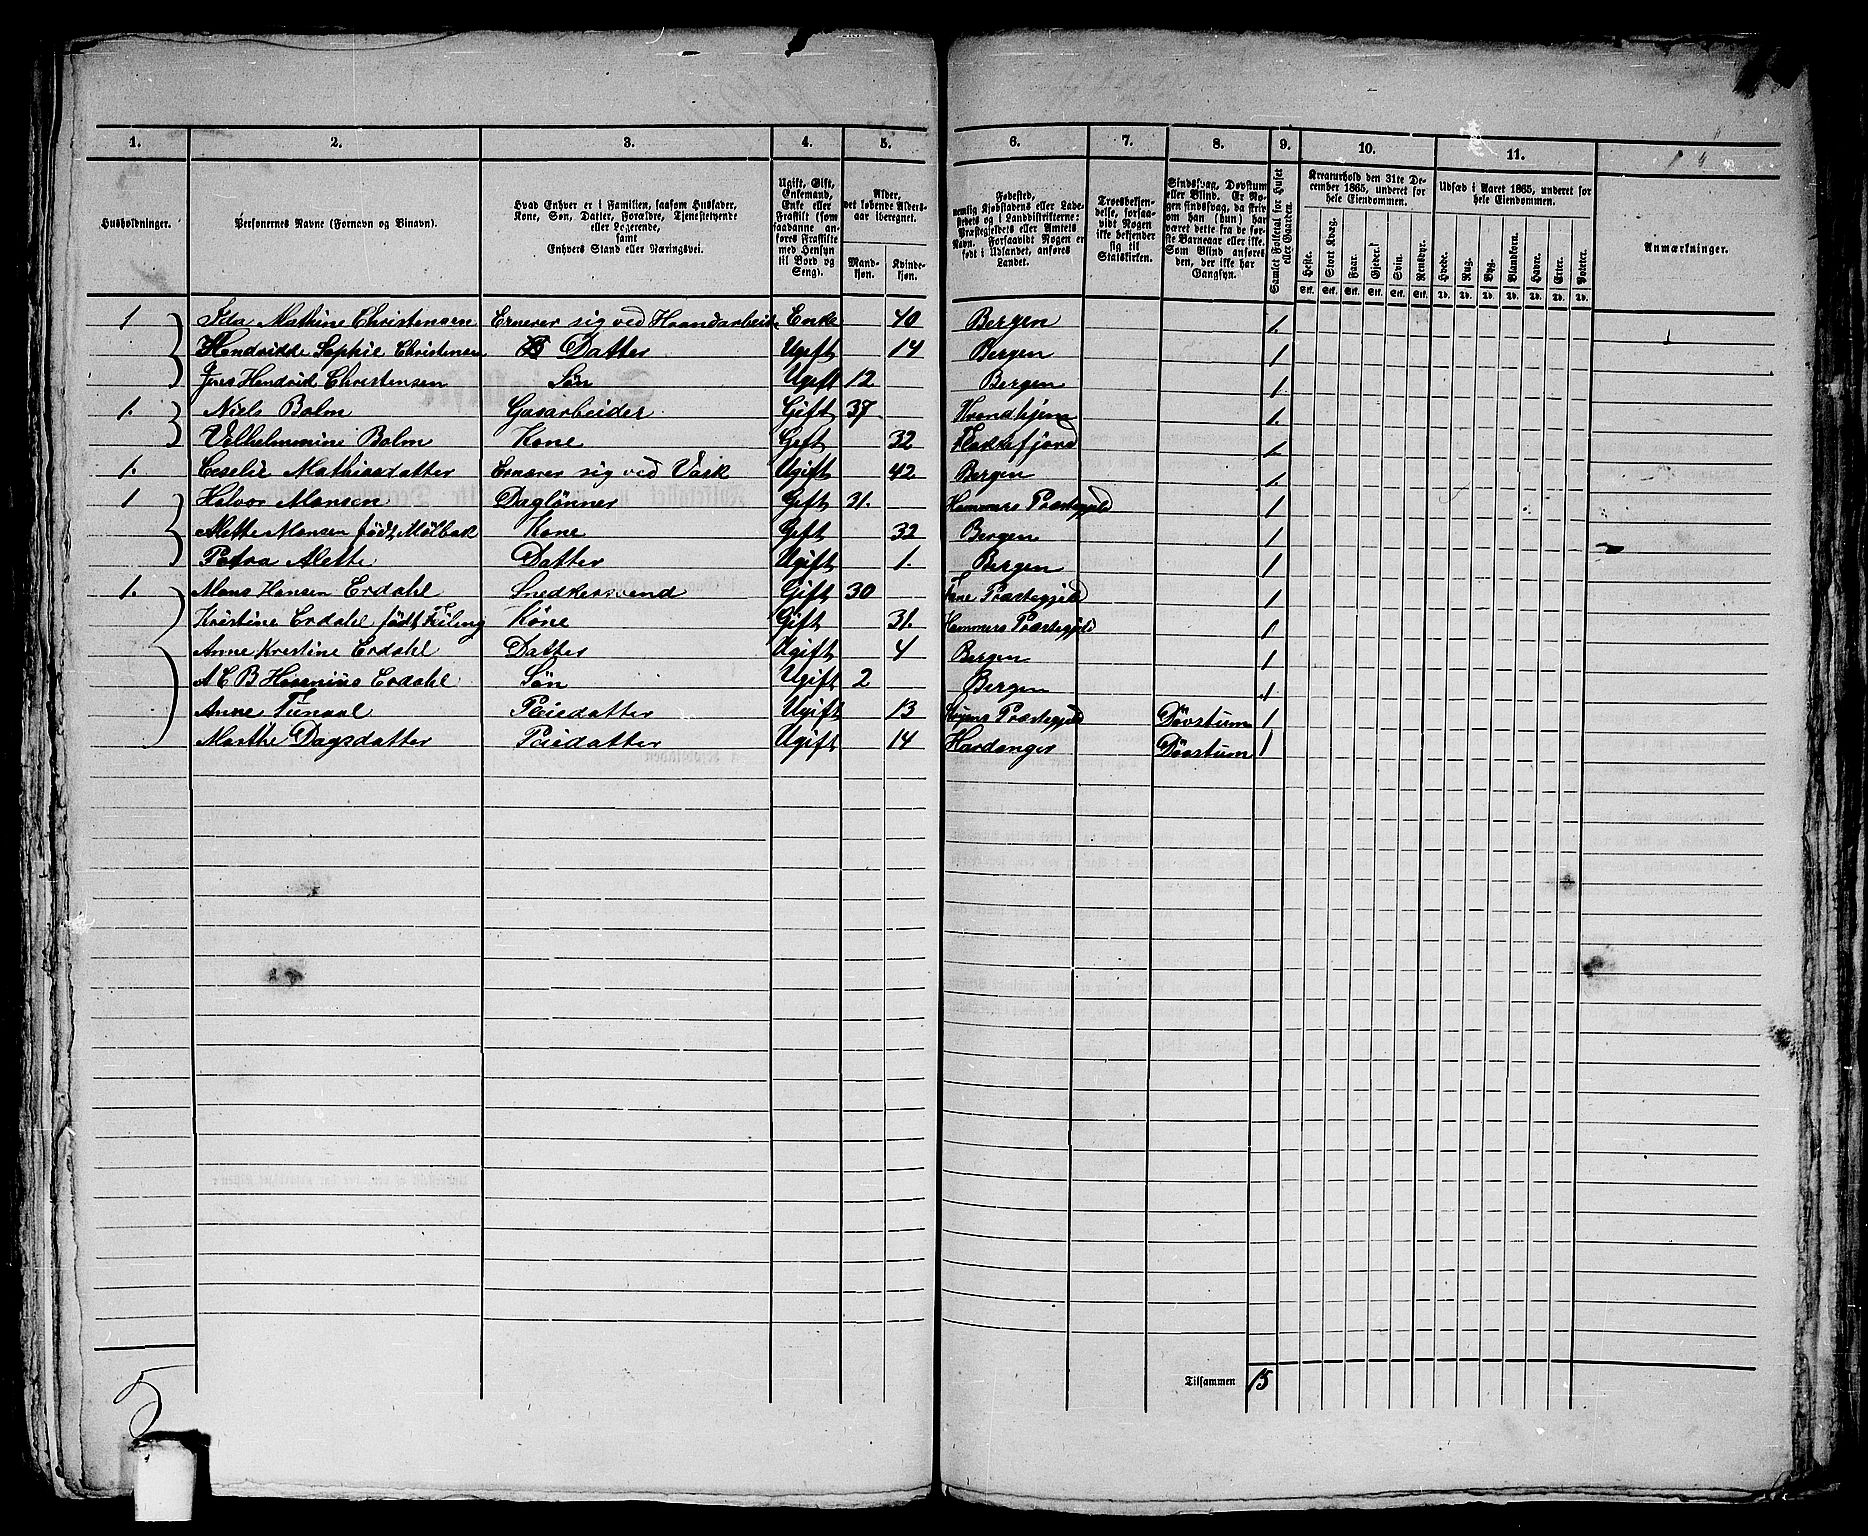 1. 2. 3. 4. 5. 6. 7. 8. 9. 10. 11.
Husholdninger.
Personernes Navne (Fornavn og Binavn).
Hvad Enhver er i Familien, saasom Husfader, Kone, Søn, Datter, Forældre, Tjenstetyende eller Logerende, samt Enhvers Stand eller Næringsvei.
Ugift, Gift, Enkemand, Enke eller Fraskilt (som saadanne anføres Fraskilte med Hensyn til Bord og Seng).
Alder, det løbende Aldersaar iberegnet.
Mandkjøn. Kvindekjøn.
Fødested, nemlig Kjøbstadens eller Ladestedets og i Landdistrikterne: Præstegjeldets eller Amtets Navn. Forsaavidt Nogen er født i Udlandet, anføres Landet.
Troesbekjendelse, forsaavidt Nogen ikke bekjender sig til Statskirken.
Sindssvag, Døvstum eller Blind. Er Nogen sindssvag, da skrives om han (hun) har været dette fra de første Barneaar eller ikke. Som Blind anføres den, der ikke har Gangsyn.
Samlet Folketal for Huset eller Gaarden.
Kreaturhold den 31te December 1865, underet for hele Eiendommen.
Heste. Stort Kvæg. Faar. Gjeder. Svin. Rensdyr.
Stk. Stk. Stk. Stk. Stk. Stk.
Udsæd i Aaret 1865, underet for hele Eiendommen.
Hvede. Rug. Byg. Blandkorn. Havre. Erter. Poteter.
Td. Td. Td. Td. Td. Td. Td.
Anmærkninger.
1 Ida Mathine Christensen Ernerer sig ved Haandarbeide Enke 40 Bergen 1.
Hendridde Sophie Christensen Datter Ugift 14 Bergen 1
Jens Hendrid Christensen Søn Ugift 12 Bergen 1
1. Niels Bolm Gasarbeider Gift 37 Trondhjem 1.
Vilhelmmine Bolm Kone Gift 32 1
1. Ceselie Mathiasdatter Ernerer sig ved Vask Ugift 42 Bergen 1.
1 Halvor Monsen Daglønner Gift 31. Hammers Præstegjeld 1
Alette Monsen født Molbak Kone Gift 32 Bergen 1
Petra Alette Datter Ugift 1. Bergen 1
1. Mons Hansen Erdahl Snedkersvend Gift 30 Fane Præstegjeld 1
Kristine Erdahl født Kone Gift 31. Hammers Præstegjeld 1
Anne Kristine Erdahl Datter Ugift 4 Bergen 1
A C B Erdahl Søn Ugift 2 Bergen 1
Anne Pleiedatter Ugift 13 Præstegjeld Døvstum 1
Marthe Dagsdatter Pleiedatter Ugift 14 Hardanger Døvstum 1
Tilsammen 15
5